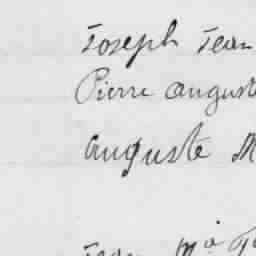 Joseph Jean
Pierre August
Auguste M
Jean Ma